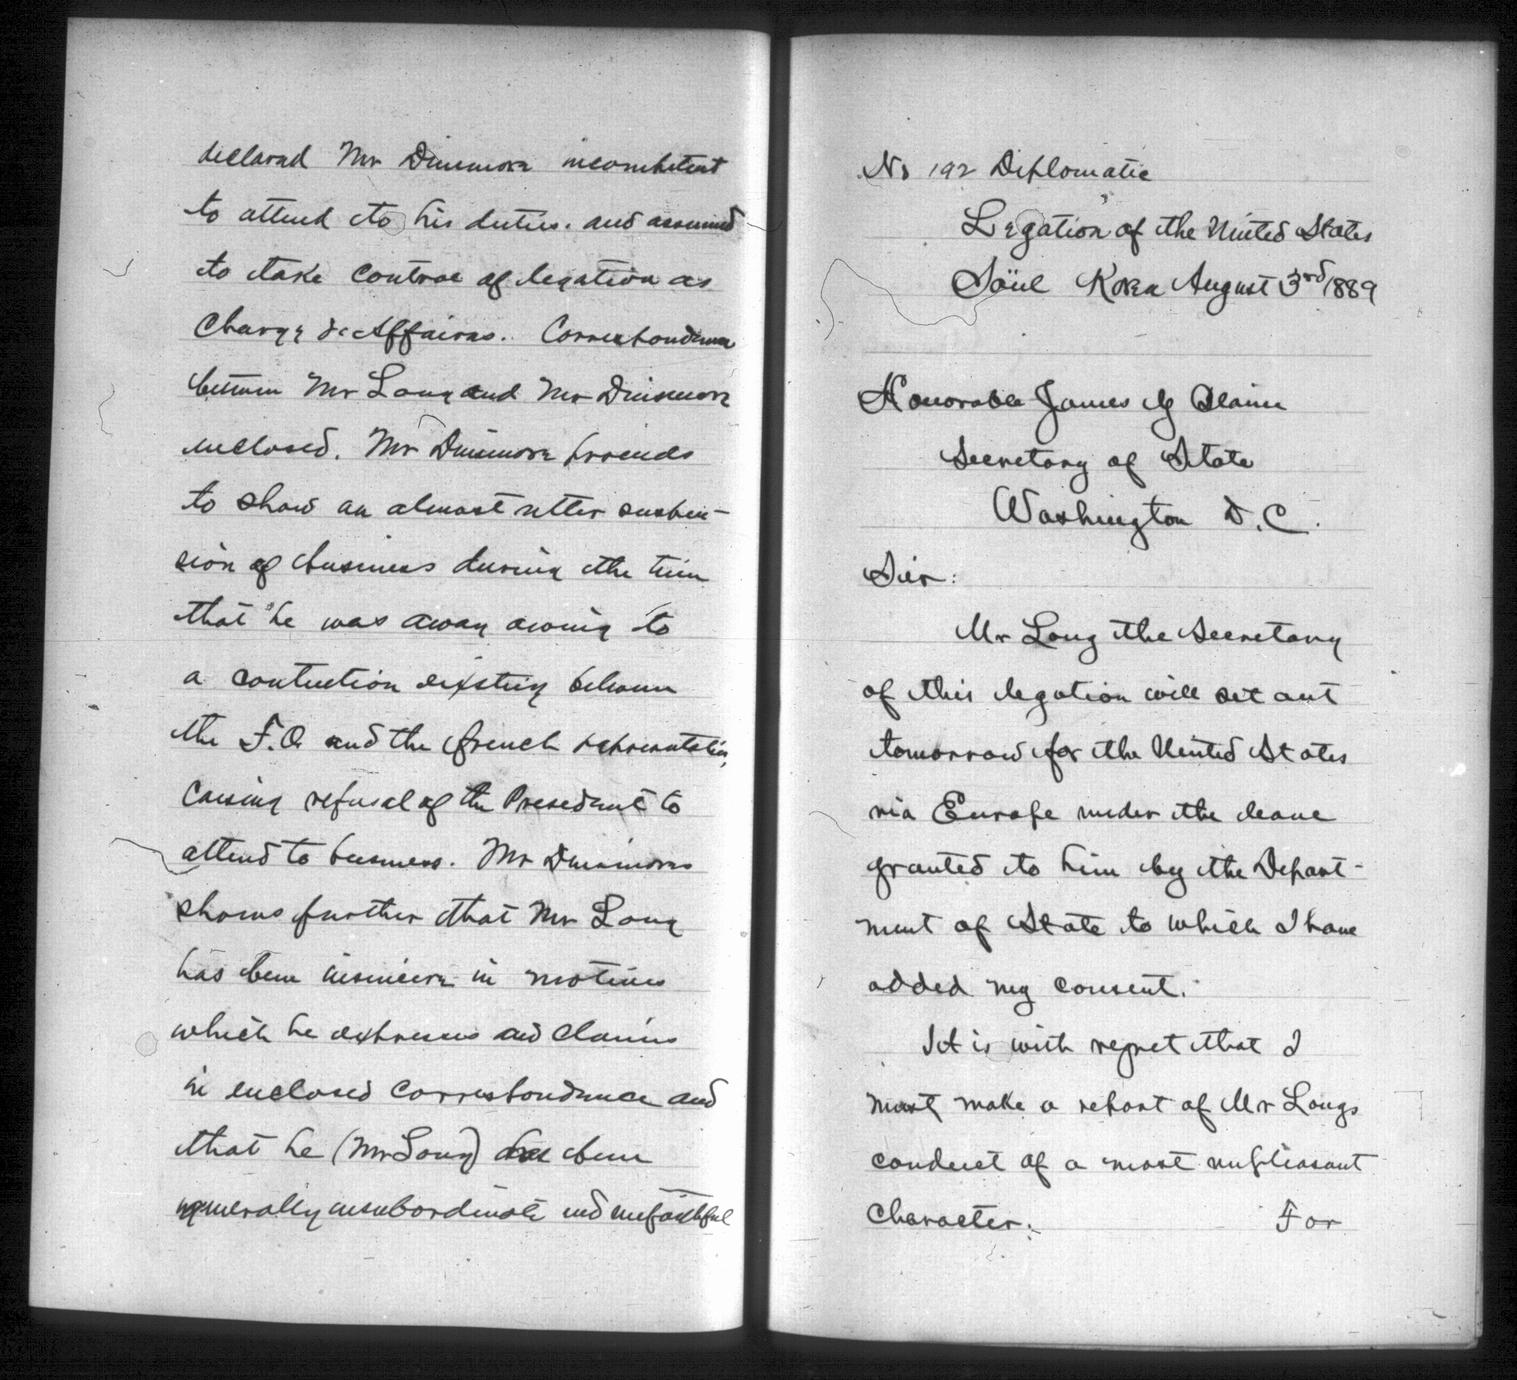 declared Mr Dinsmore incompetent
to attend to his duties. and assumed
to take control of legation as
Chargé de Affaires. Correspondence
between Mr Long and Mr Dinsmore
enclosed. Mr Dinsmore proceeds
to show an almost utter suspen-
sion of business during the time
that he was away owing to
a contention existing between
the F.O. and the french representative,
causing refusal of the President to
attend to business. Mr Dinsmore
shows further that Mr Long
has been insincere in motives
which he expresses and claims
in enclosed correspondence and
that he (Mr Long) has been
generally insubordinate and unfaithful
No 192 Diplomatic
Legation of the United States
Söul Korea August 3rd 1889
Honorable James G Blaine
Secretary of State
Washington D.C.
Sir:
Mr Long the Secretary
of this legation will set out
tomorrow for the United States
via Europe under the leave
granted to him by the Depart-
ment of State to which I have
added my consent.
It is with regret that I
must make a report of Mr Longs
conduct of a most unpleasant
character. For